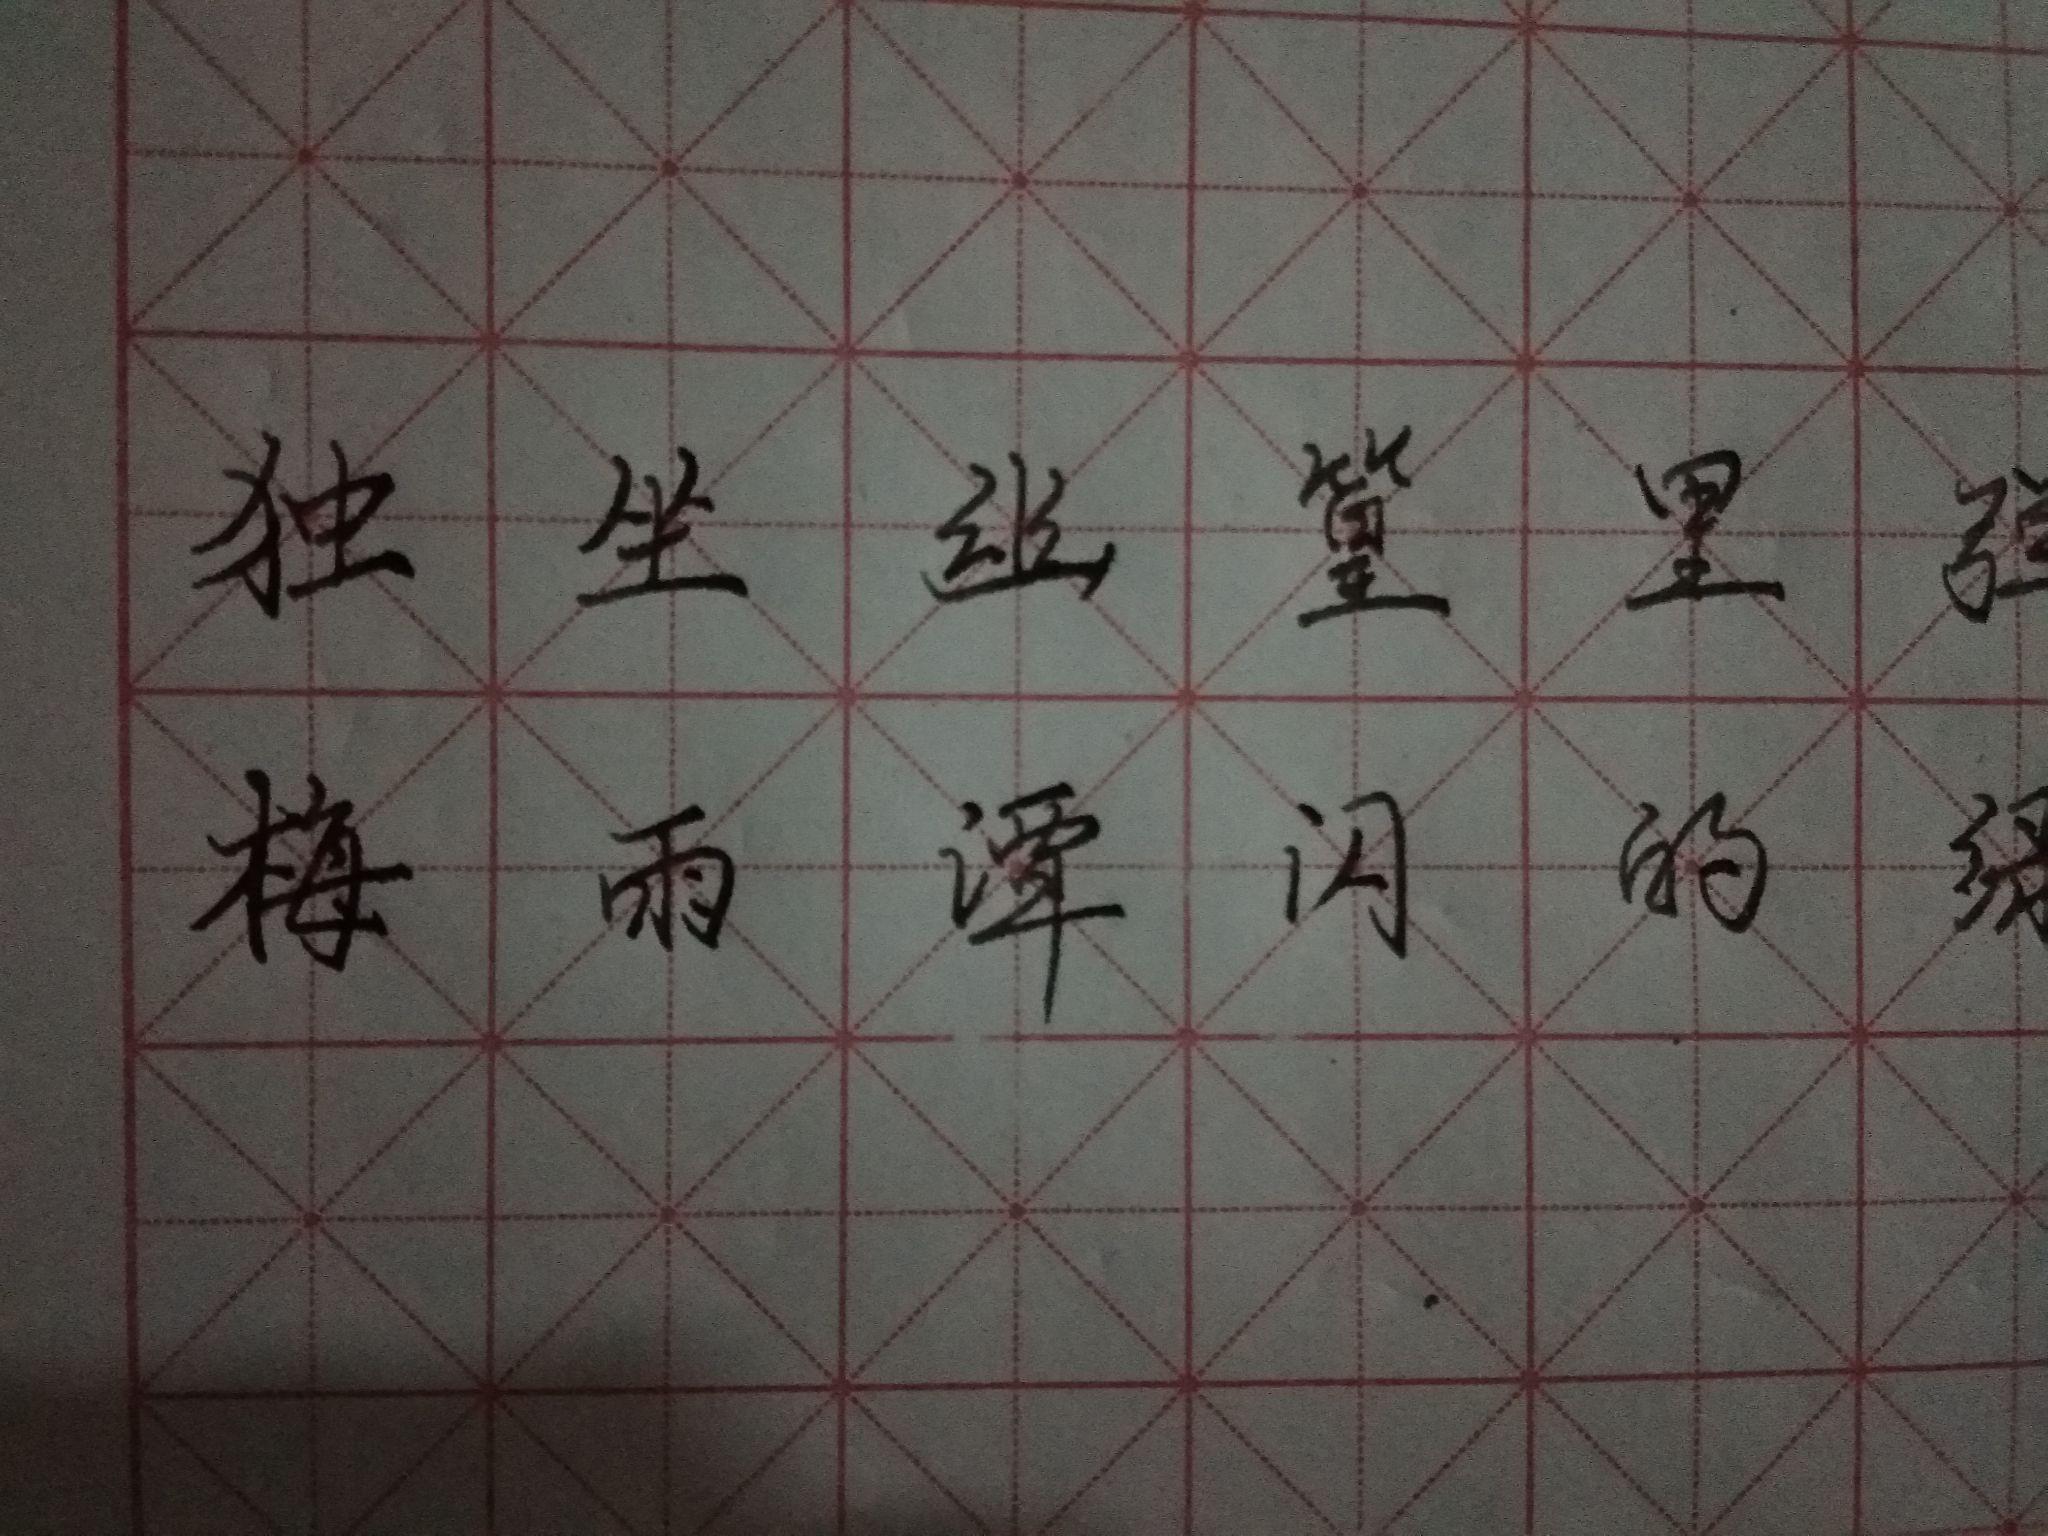 独坐幽篁里弹
梅雨潭闪的绿